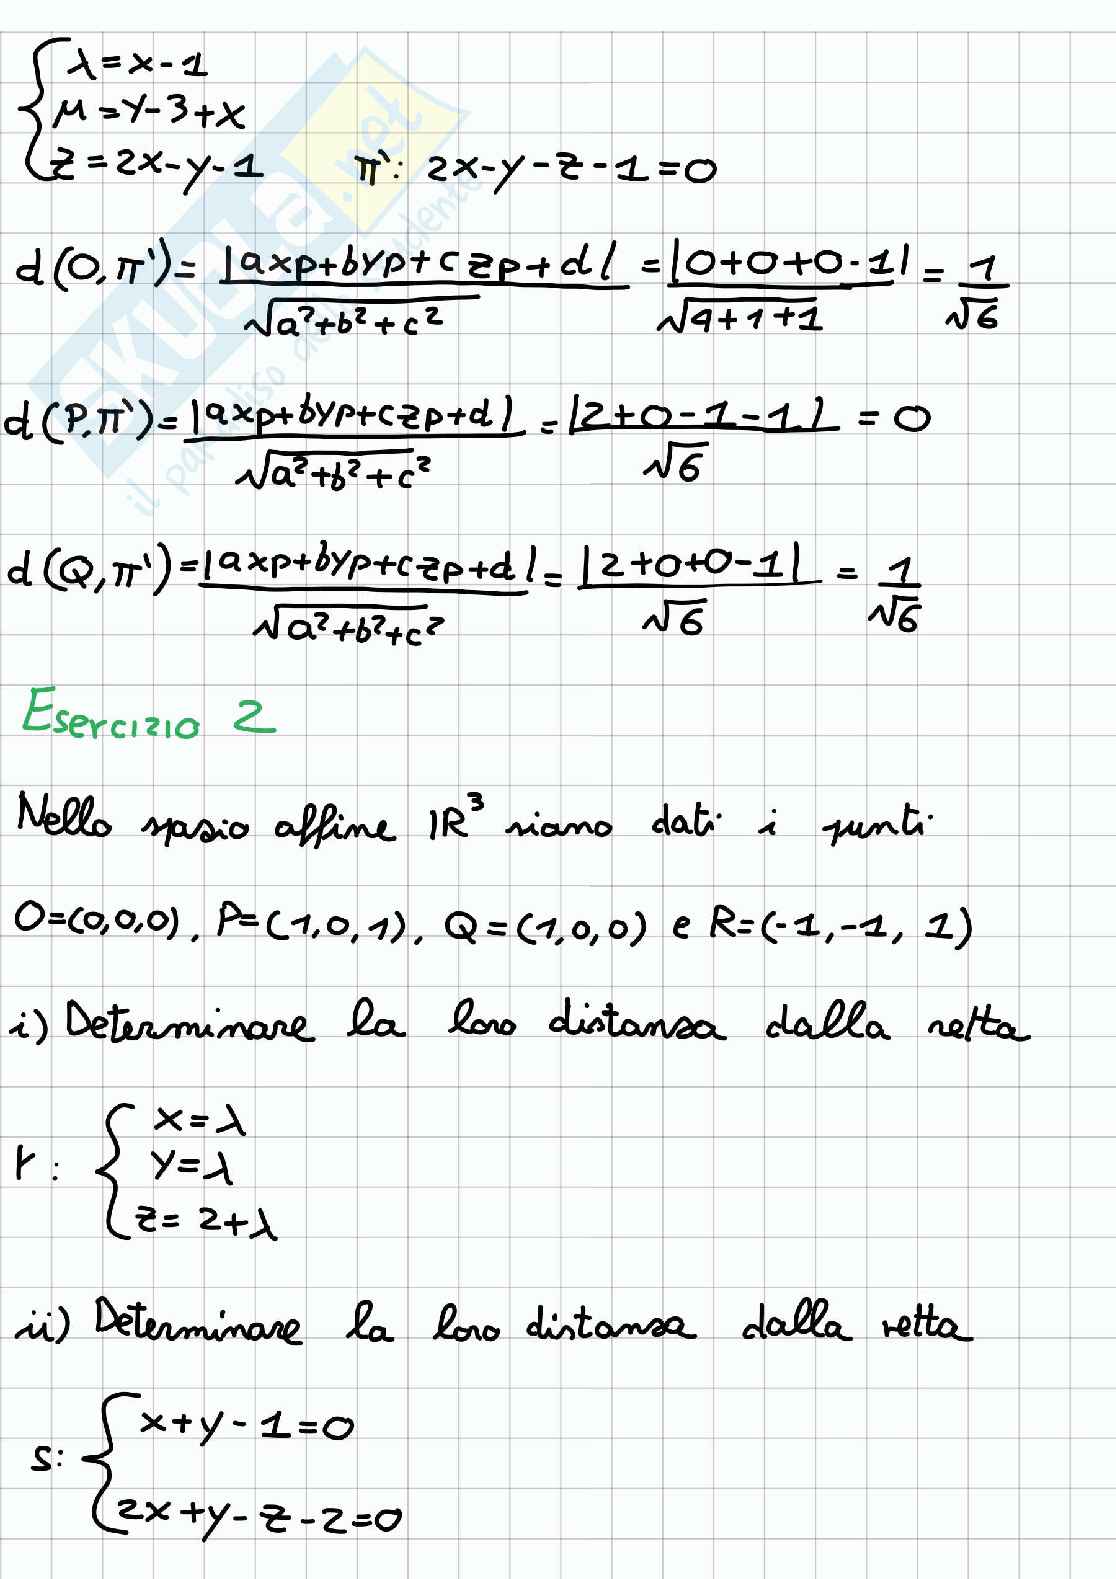 λ=x-1
μ=y-3+x
z=2x-y-1 π': 2x-y-z-1=0
d(O,π')= |axp+byp+czp+d| / √a²+b²+c² = |0+0+0-1| / √4+1+1 = 1/√6
d(P,π')= |axp+byp+czp+d| / √a²+b²+c² = |2+0-1-1| / √6 = 0
d(Q,π')= |axp+byp+czp+d| / √a²+b²+c² = |2+0+0-1| / √6 = 1/√6
Esercizio 2
Nello spazio affine ℝ³ siano dati i punti
O=(0,0,0), P=(1,0,1), Q=(1,0,0) e R=(-1,-1, 1)
i) Determinare la loro distanza dalla retta
r: { x=λ
y=λ
z= 2+λ
ii) Determinare la loro distanza dalla retta
s: { x+y-1=0
2x+y-z-2=0
SKUOLA.net